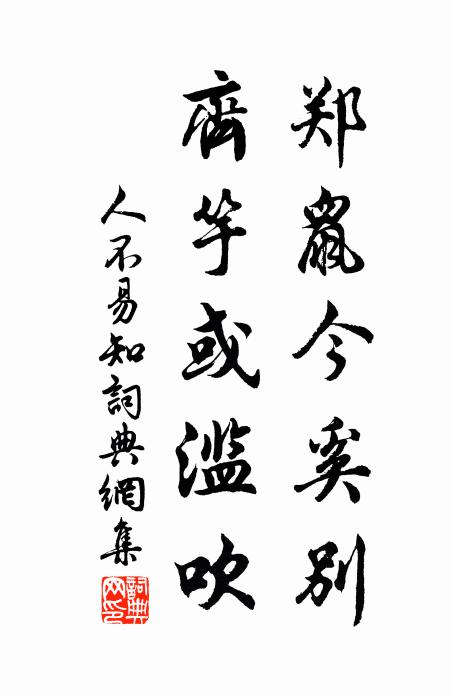 郑鼠今奚别
齊竽或滥吹
人不易知詞典網集
詞典
网印